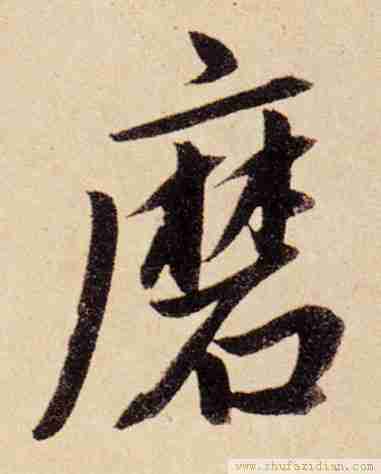 磨
www.zhufazidian.com